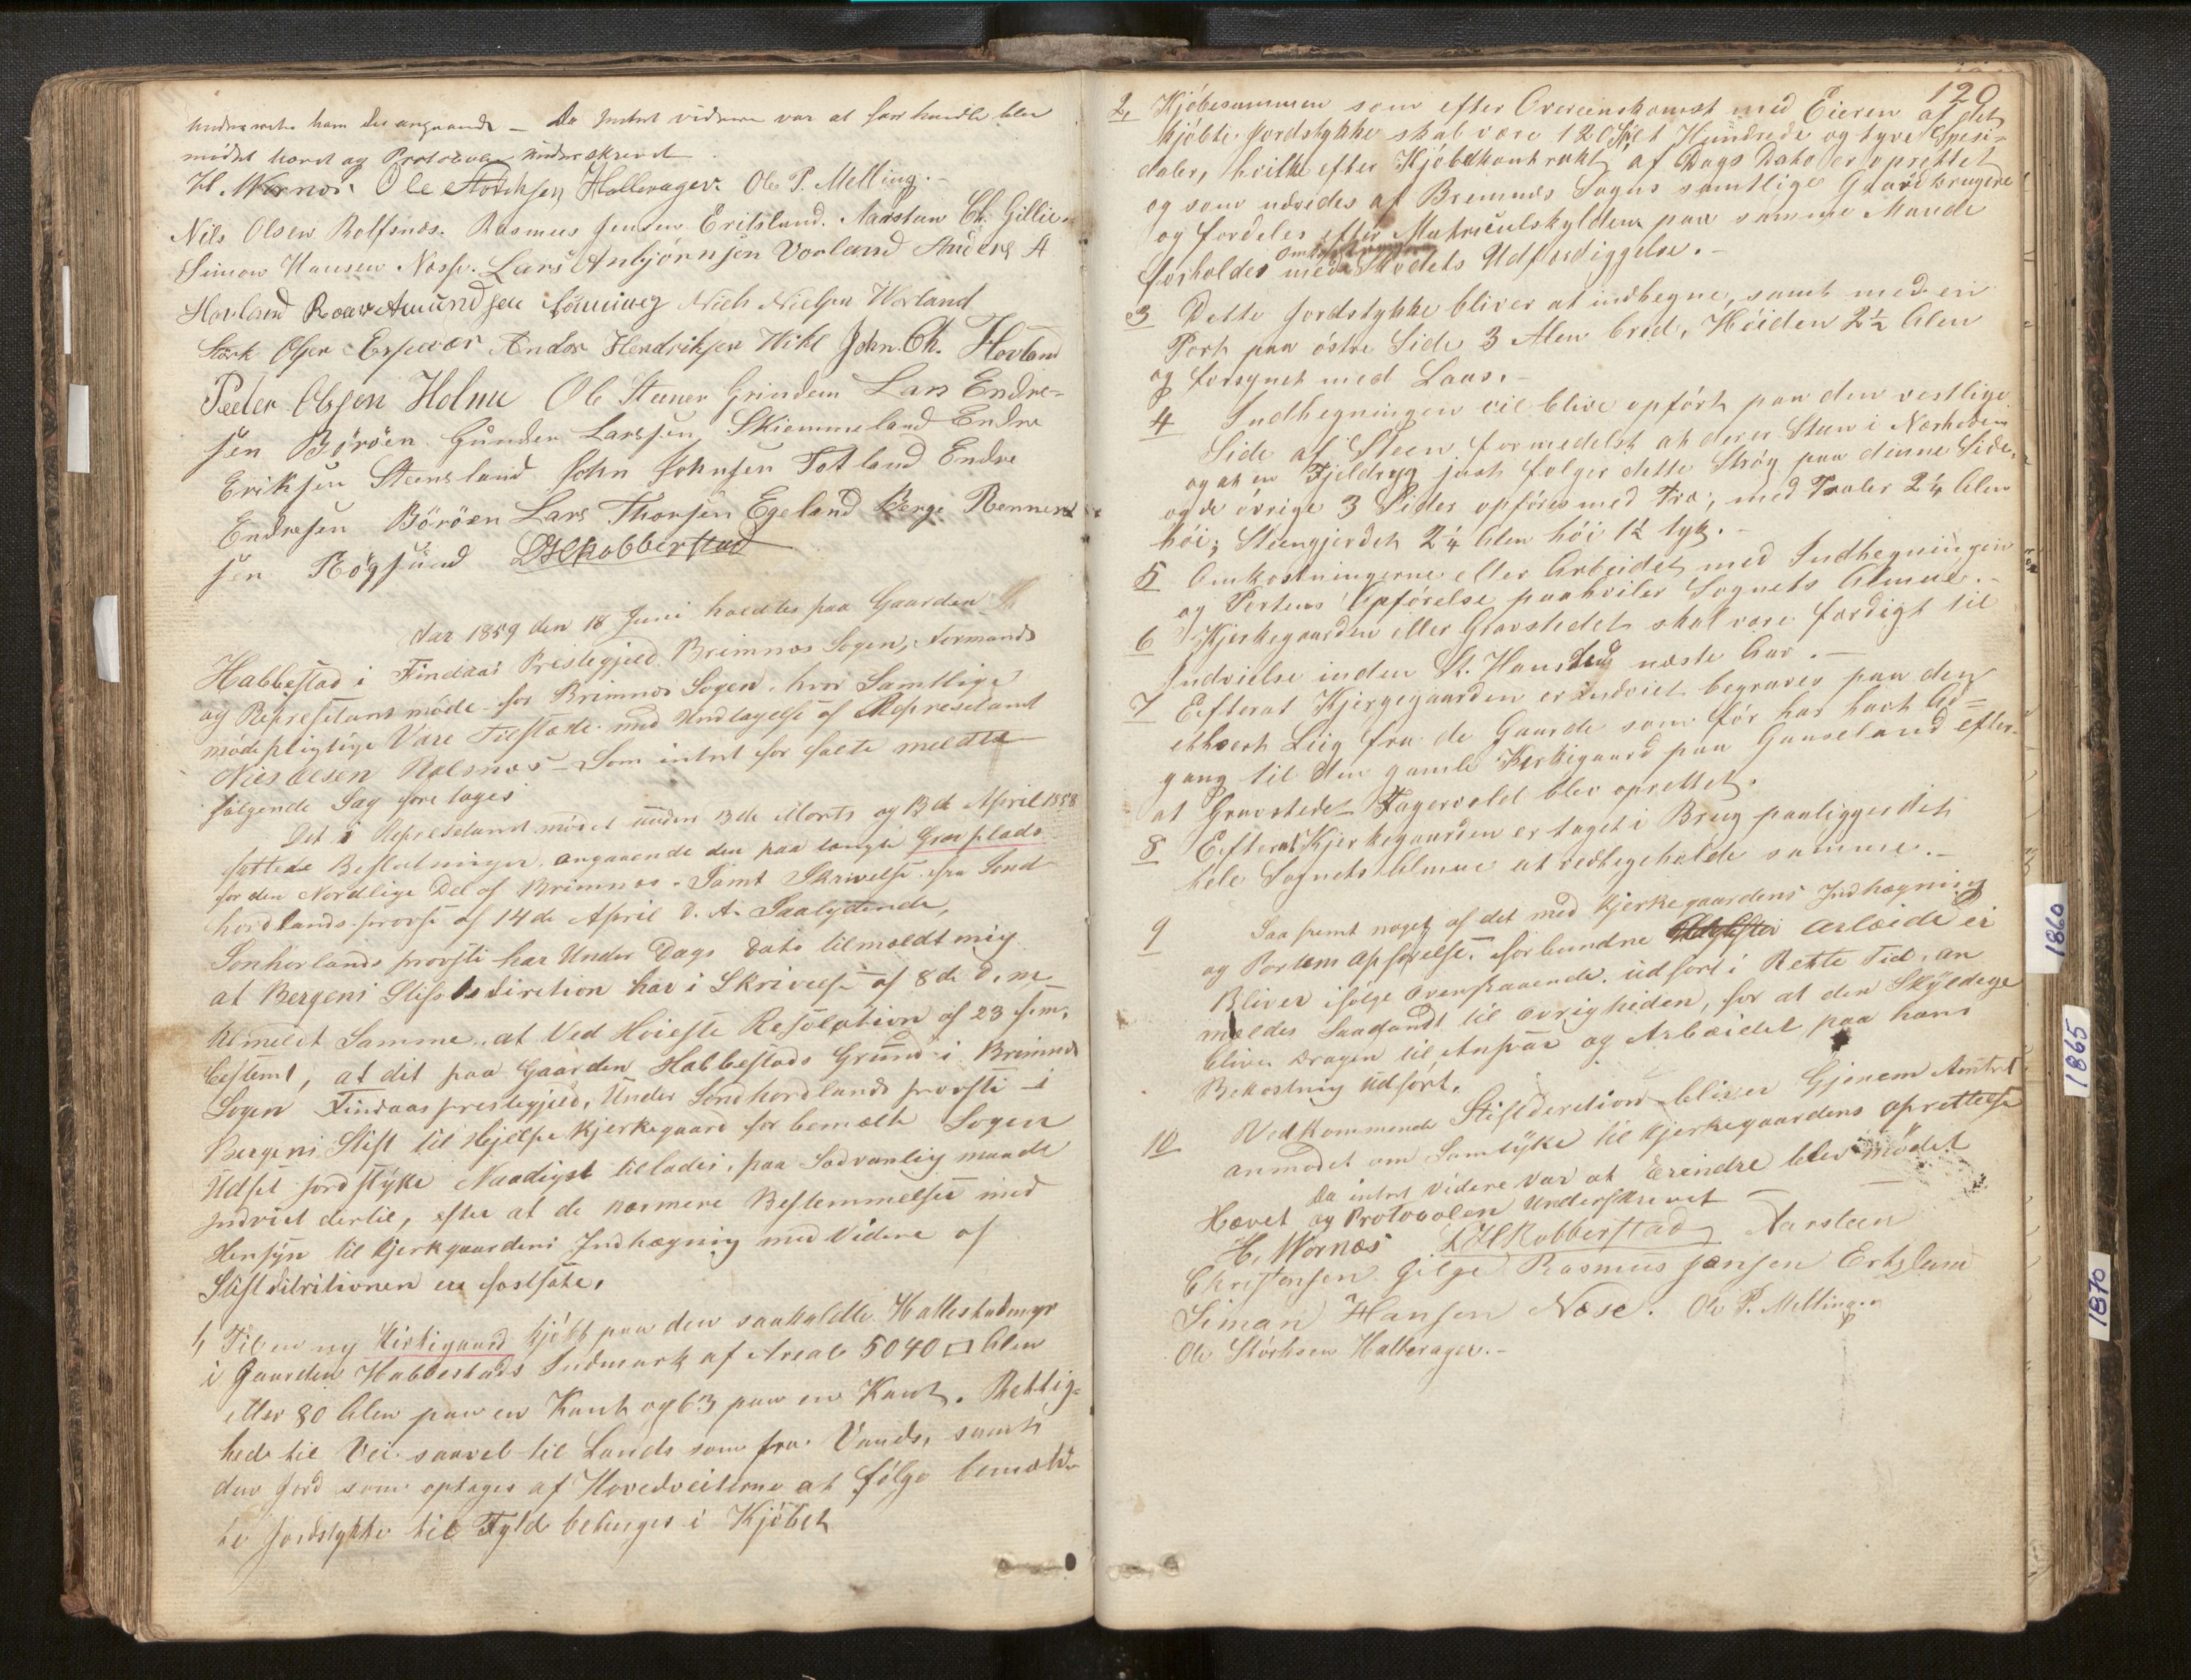 underrette ham des angaaende _ Da Intet videre var at forhandle blev
mödet hævet og Protocolen underskrevet.
H. Wernøs. Ole Størksen Hallerager. Ole P. Melling._
Nils Olsen Rolfsnæs. Rasmus Jensen Eritsland. Aarstæn Ch. Gillie.
Simon Hansen Næsse. Lars Anbjørnsen Vorland Anders A
Hovland Roar Amundsen Nich Nielsen Worland
Størk Olsen Espevær Andor Hendriksen Hikl John. Ch. Hovland
Peeter Olssen Holme Ole Steener Grindem Lars Endre=
sen Böröen Gunder Larssen Skiemmeland Endre
Eriksen Steensland John Johnsen Totland Endre
Endresen Böröen Lars Thorsen Egeland Berge Rennere
sen Rögsund LHKobberstad
Aar 1859 den 18 Juni holdtes paa Gaarden
Habbestad i Findaas Prestegjeld Brimnæs Sogen, Formands
og Represetant möde for Brimnæs Sogen. hvor Samtlige
mödepligtige Vare Tilstæde med Undtagelse af Represetant
Nils Olsen Rolsnæs - Som intet for falte meldte
fölgende Sag foretages
Det i Represetant mödet under 3de Marts og 13de April 1858
fattede Beslutninger angaaende den paa tængte Gravplads
for den Nordlige Del af Brimnæs. Samt Skrivelse fra Sönd
hordlands provsti af 14de April d. A. Saalydende,
Sönhorlands provsti har Under Dags Dato tilmældt mig
at Bergens Stiftsdiretion har i Skrivelse af 8de d. m.
tilmeldt Samme. at Ved Höieste Resolution af 23 f. m.
bestemt, at dit paa Gaarden Habbestads Grund i Brimnæs
Sogen Findaas prestegjeld, Under Söndhordlands provsti i
Bergens Stift til Hjelpe Kjerkegaard for bemælte Sogen
Udset jordstyke Naadigst tillades, paa Sædvanlig maade
Indviet dertil, efter at de nærmere Bestemmelser med
Hensyn til Kjerkgaardens Indhægning med Videre af
Stiftditritionen er fastsate.
1, Til en ny Kirkegaard kjöbt paa den saakaldte Habbestadmyr
i Gaarden Habbestads Indmark af Areal 5040 □ Alen
eller 80 Alen paa en Kant og 63 paa en Kant. Rettig=
hed til Vei saavel til Lands som fra Vands, samt
den Jord som optages af Hovedveiterne at fölge bemeld-
te Jordstykke til Fyld betinges i Kjöbet
120
2, Kjöbesummen som efter Overeenskomst med Eieren af det
kjöbte Jordstykke skal være 120 Spd Et Hundrede og tyve Spesi-
daler, hvilke efter Kjöbekontrakt af Dags Dato er oprettet
og som udredes af Bremnæs Sogns samtlige Gaardbrugere
og fordeles efter Matriculskylden paa samme Maade
forholdes med Skødets Udfærdiggelse._
3 Dette Jordstykke bliver at indhegne, samt med en
Port paa östre Side 3 Alen bred, Höiden 2½ Alen
og forsynet med Laas._
4 Indhegningen vil blive opfört paa den vestlige
Side af Steen formedelst at der er Steen i Nærheden
og at en Fjeldryg just følger dette Strög paa denne Side,
og de övrige 3 Sider opföres med Træ, med Traler 2¼ Alen
höi; Steengjerdet 2¼ Alen höi 1½ tyk._
5 Omkostningerne eller Arbeidet med Indhegningen
og Portens Opförelse paahviler Sognets Almue._
6 Kjerkegaarden eller Gravstedet skal være færdigt til
Indvielse inden St. Hans næste Aar._
7 Efterat Kjergegaarden er indviet begraves paa den
ethvert Liig fra de Gaarde som för har havt Ad=
gang til den gamle Kirkegaard paa Gaaseland efter
at Gravstedet Fagervold blev oprettet.
8 Efterat Kjerkegaarden er taget i Brug paaligger det
hele Sognets Almue at vedligeholde samme._
9 Saa fremt noget af det med Kjerkegaardens Indhægning
og Portens opförelse, forbundne Arbeide ei
Bliver ifölge Ovenstaaende. udfört i Rette Tid, an
meldes Saadandt til Övrigheden, for at den Skyldege
bliver Dragen til Ansvar og Arbeidet paa hans
Bekostning udfört.
10 Vedkommende Stiftderetion bliver Gjenem Amtet
anmodet om Samtyke til Kjerkegaardens oprettelse
Da intet Videre var at Erindre blev mödet
Hævet og Protocolen Underskrevet
H. Wernøs LHKobberstad Aarsteen
Christensen Gilge Rasmus Jansen Eritsland
Siman Hansen Næse. Ole P. Melling.
Ole Störksen Hallerager._
1860
1865
1870